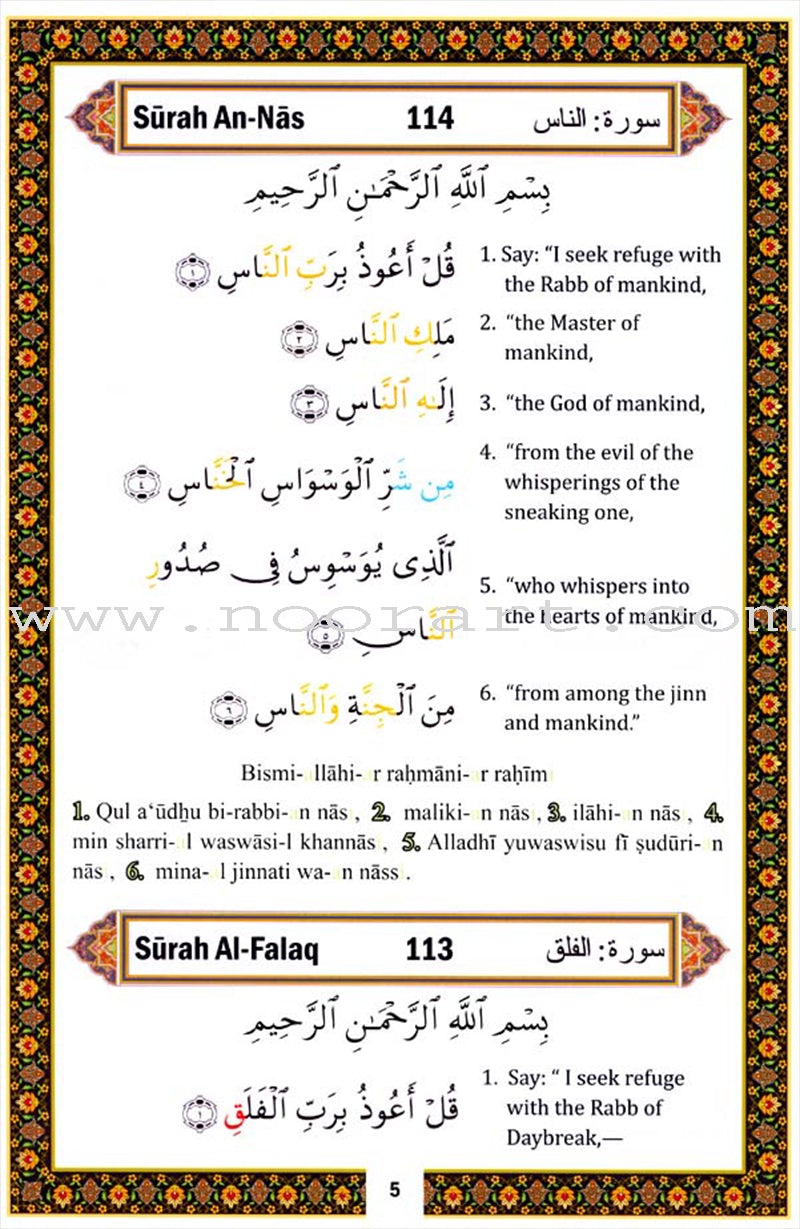 Sūrah An-Nās 114 سورة: الناس
بِسْمِ ٱللَّهِ ٱلرَّحْمَـٰنِ ٱلرَّحِيمِ
قُلْ أَعُوذُ بِرَبِّ ٱلنَّاسِ ١
1. Say: “I seek refuge with
the Rabb of mankind,
مَلِكِ ٱلنَّاسِ ٢
2. “the Master of
mankind,
إِلَـٰهِ ٱلنَّاسِ ٣
3. “the God of mankind,
مِن شَرِّ ٱلْوَسْوَاسِ ٱلْخَنَّاسِ ٤
4. “from the evil of the
whisperings of the
sneaking one,
ٱلَّذِى يُوَسْوِسُ فِى صُدُورِ
ٱلنَّاسِ ٥
5. “who whispers into
the hearts of mankind,
www.noorart.com
مِنَ ٱلْجِنَّةِ وَٱلنَّاسِ ٦
6. “from among the jinn
and mankind.”
Bismi-allāhi-ar raḥmāni-ar raḥīmi
1. Qul a‘ūdhu bi-rabbi-an nāsi, 2. maliki-an nāsi, 3. ilāhi-an nāsi, 4.
min sharri-al waswāsi-l khannāsi, 5. Alladhī yuwaswisu fī ṣudūri-an
nāsi, 6. mina-al jinnati wa-an nāssi.
Sūrah Al-Falaq 113 سورة: الفلق
بِسْمِ ٱللَّهِ ٱلرَّحْمَـٰنِ ٱلرَّحِيمِ
قُلْ أَعُوذُ بِرَبِّ ٱلْفَلَقِ ١
1. Say: “ I seek refuge
with the Rabb of
Daybreak,—
5